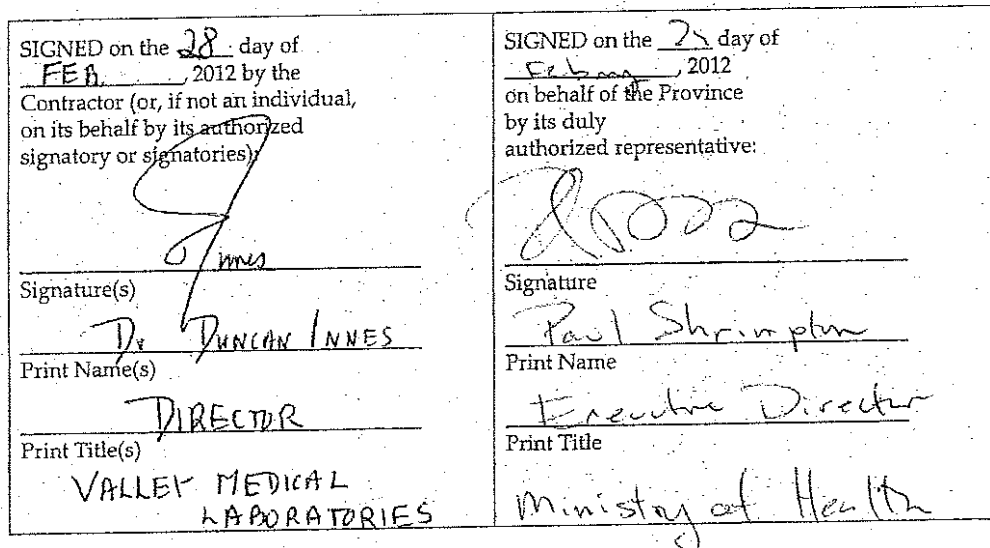 SIGNED on the 28 day of
FEB. , 2012 by the
Contractor (or, if not an individual,
on its behalf by its authorized
signatory or signatories):
Innes
Signature(s)
Dr DUNCAN INNES
Print Name(s)
DIRECTOR
Print Title(s)
VALLEY MEDICAL
LABORATORIES
SIGNED on the day of
February , 2012
on behalf of the Province
by its duly
authorized representative:
Signature
Paul Shrimpton
Print Name
Executive Director
Print Title
Ministry of Health